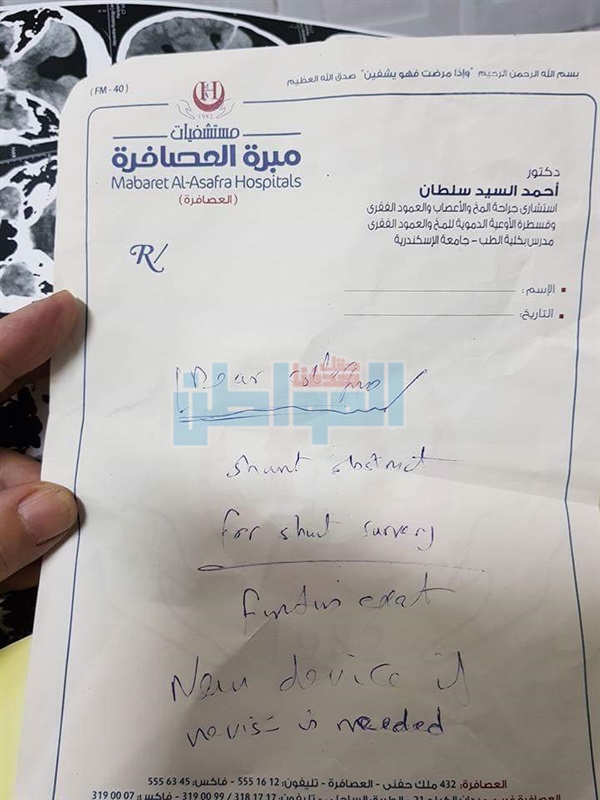 بسم الله الرحمن الرحيم "وإذا مرضت فهو يشفين" صدق الله العظيم
(FM - 40)
1982
مستشفيات
مبرة العصافرة
Mabaret Al-Asafra Hospitals
(العصافرة)
دكتور
أحمد السيد سلطان
استشاري جراحة المخ والأعصاب والعمود الفقري
وقسطرة الأوعية الدموية للمخ والعمود الفقري
مدرس بكلية الطب - جامعة الإسكندرية
R/
الإسم :
التاريخ:
Dear
المواطن
shunt obstruct
For shunt survery
Fundus exat
New device if
revis is needed
العصافرة: 432 ملك حفني - العصافرة - تليفون: 12 16 555 - فاكس: 45 63 555